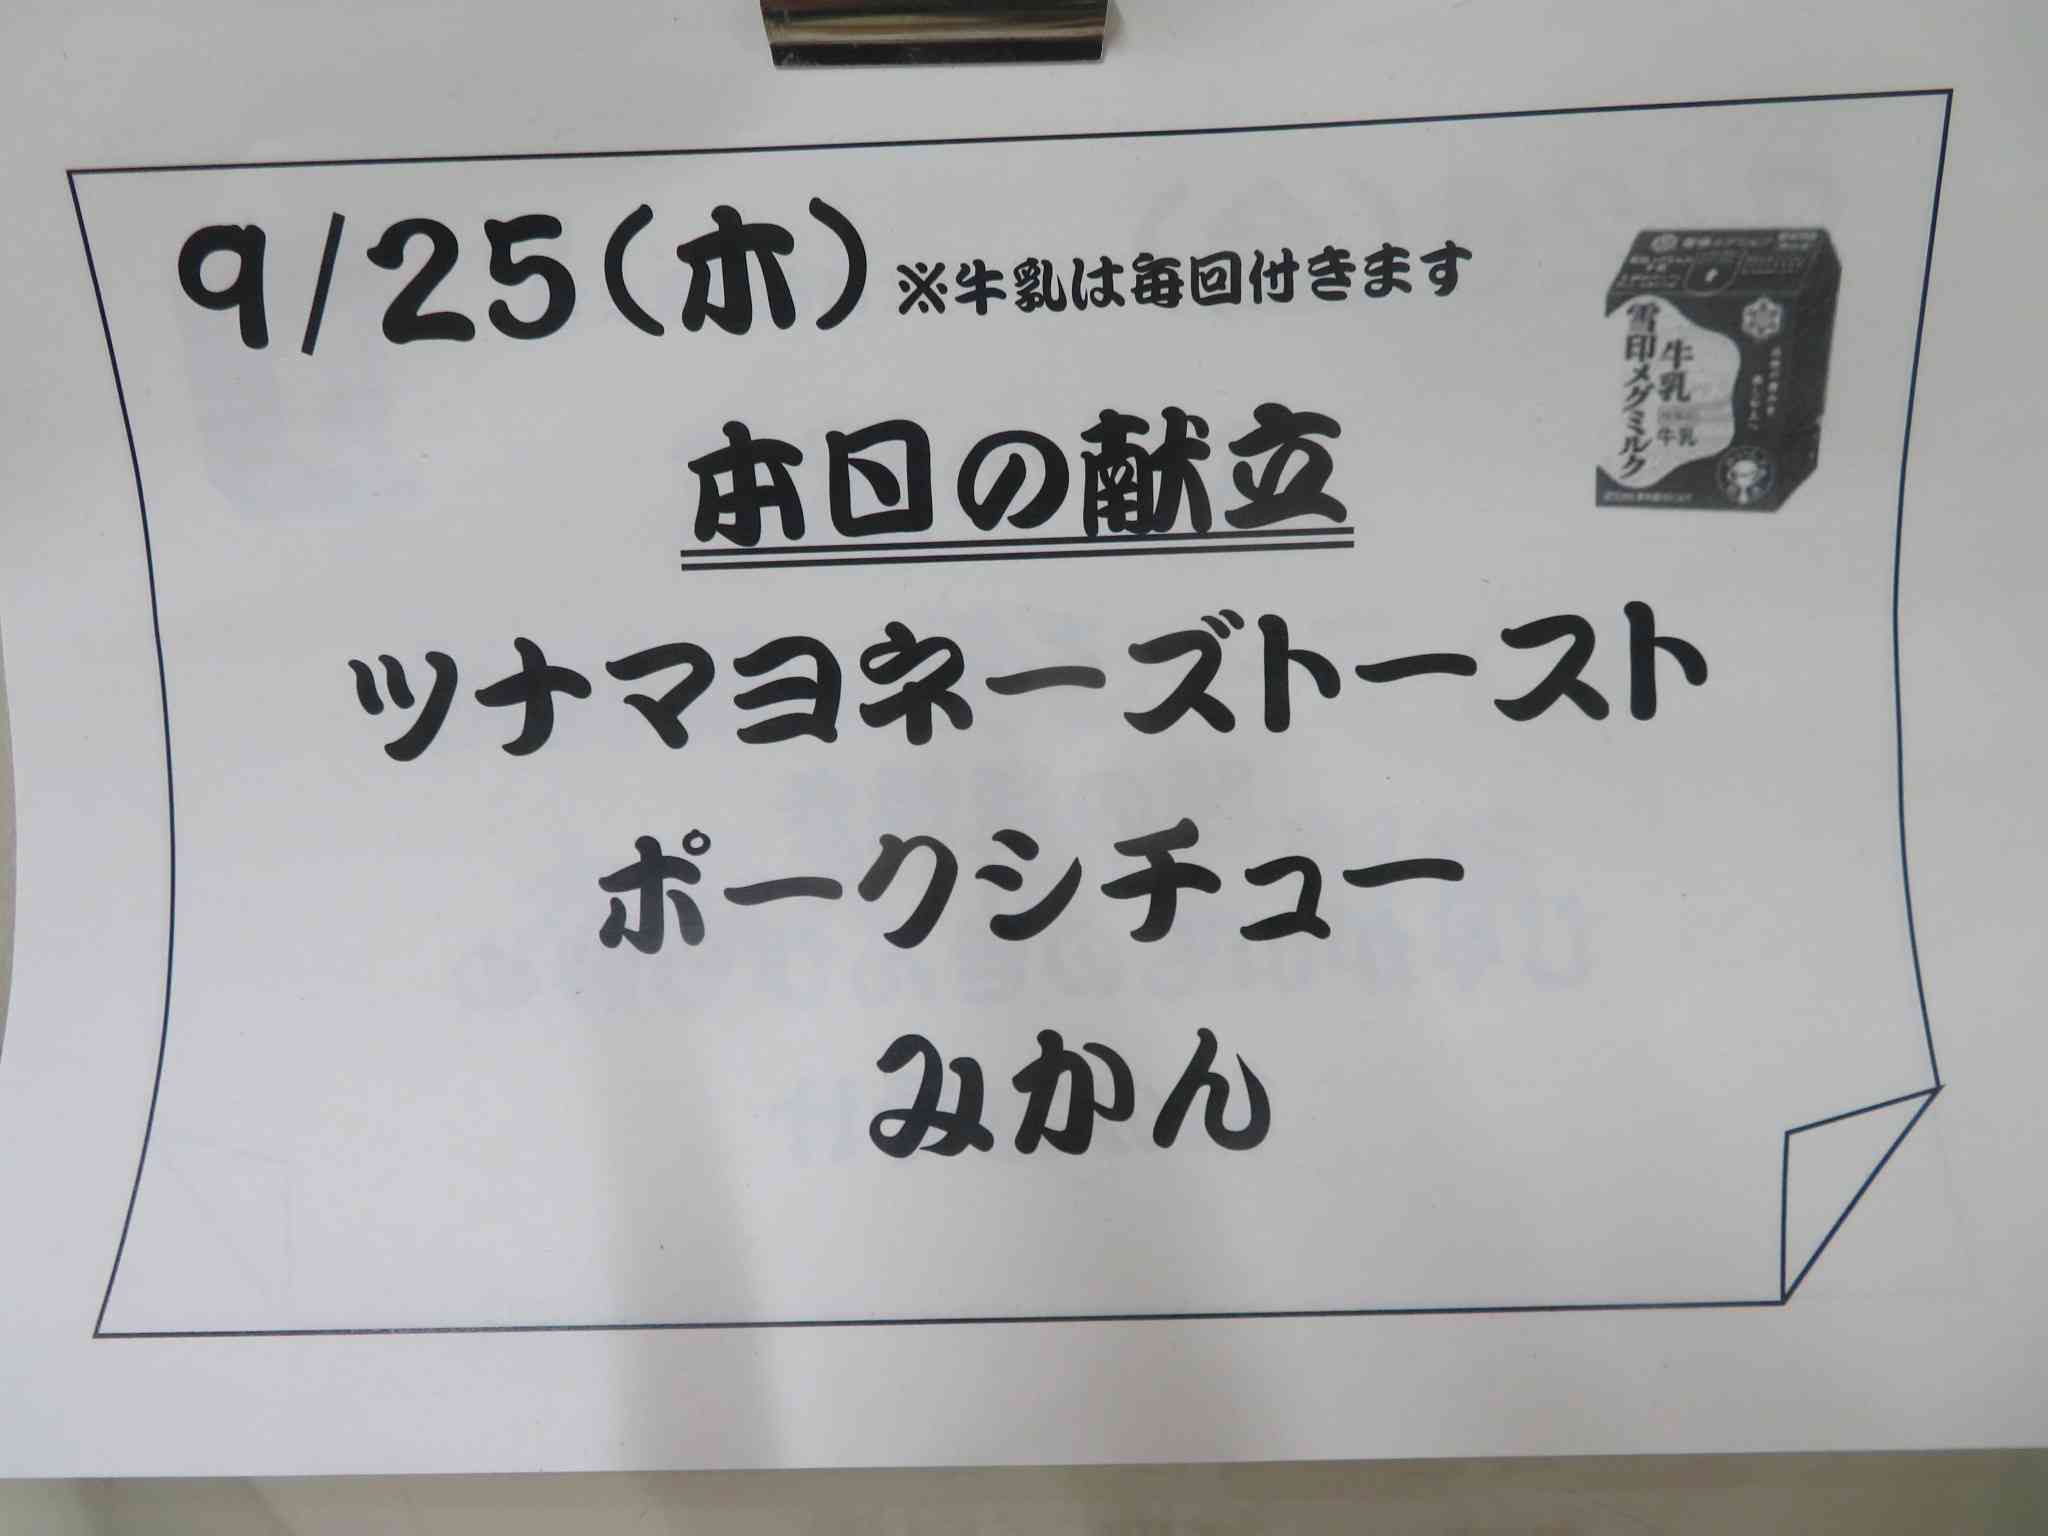 9/25(木) ※牛乳は毎回付きます
雪印メグミルク
牛乳
牛乳
本日の献立
ツナマヨネーズトースト
ポークシチュー
みかん